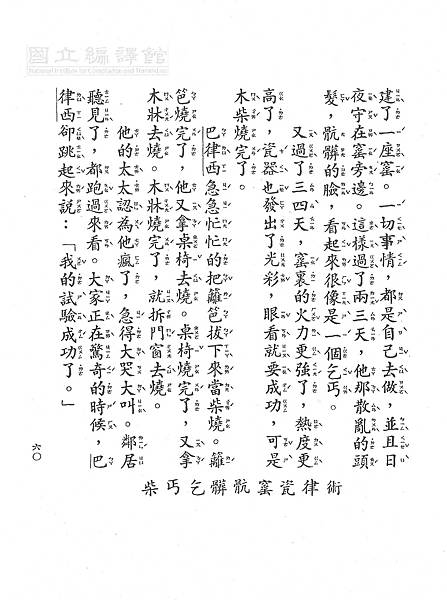 國立編譯館
National Institute for Compilation and Translation
建了一座窰。一切事情，都是自己去做，並且日
夜守在窰旁邊。這樣過了兩三天，他那散亂的頭
髮，骯髒的臉，看起來很像是一個乞丐。
又過了三四天，窰裏的火力更強了，熱度更
高了，瓷器也發出了光彩，眼看就要成功，可是
木柴燒完了。
巴律西急急忙忙的把籬笆拔下來當柴燒。籬
笆燒完了，他又拿桌椅去燒。桌椅燒完了，又拿
木牀去燒。木牀燒完了，就拆門窗去燒。
他的太太認為他瘋了，急得大哭大叫。鄰居
聽見了，都跑過來看。大家正在驚奇的時候，巴
律西卻跳起來說：「我的試驗成功了。」
術律瓷窰骯髒乞丐柴
六〇